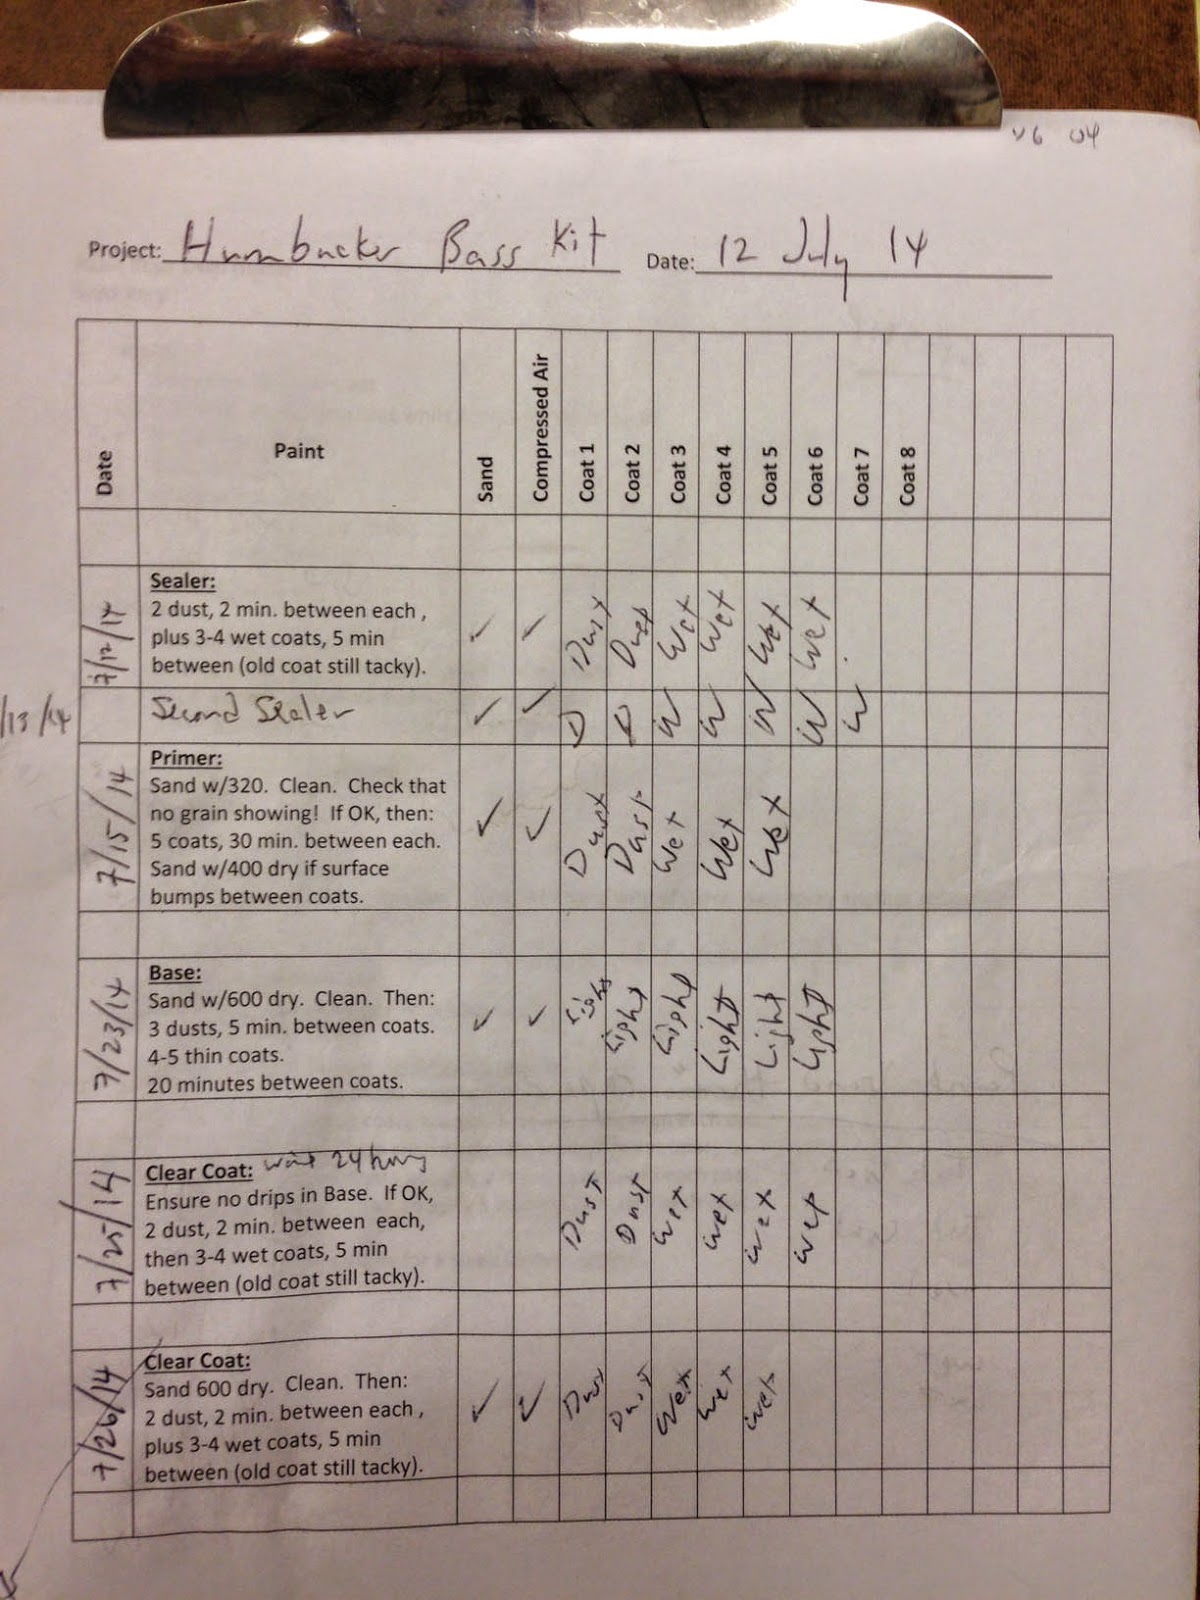 Project: Humbucker Bass Kit Date: 12 July 14
Date Paint Sand Compressed Air Coat 1 Coat 2 Coat 3 Coat 4 Coat 5 Coat 6 Coat 7 Coat 8
7/12/14
Sealer:
2 dust, 2 min. between each ,
plus 3-4 wet coats, 5 min
between (old coat still tacky).
✓ ✓ Dust Dust Wet Wet Wet Wet
/13/14 Second Sealer ✓ ✓ D D W W W W W
7/15/14
Primer:
Sand w/320. Clean. Check that
no grain showing! If OK, then:
5 coats, 30 min. between each.
Sand w/400 dry if surface
bumps between coats.
✓ ✓ Dust Dust Wet Wet Wet
7/23/14
Base:
Sand w/600 dry. Clean. Then:
3 dusts, 5 min. between coats.
4-5 thin coats.
20 minutes between coats.
✓ ✓ Light Light Light Light Light Light
7/25/14
Clear Coat: wait 24 hours
Ensure no drips in Base. If OK,
2 dust, 2 min. between each,
then 3-4 wet coats, 5 min
between (old coat still tacky).
Dust Dust Wet Wet Wet Wet
7/26/14
Clear Coat:
Sand 600 dry. Clean. Then:
2 dust, 2 min. between each ,
plus 3-4 wet coats, 5 min
between (old coat still tacky).
✓ ✓ Dust Dust Wet Wet Wet